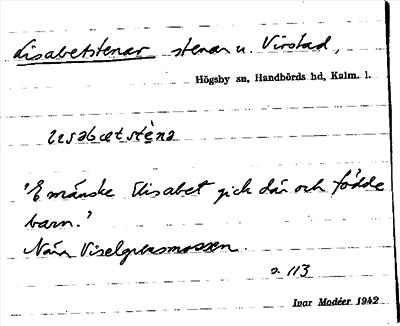 Lisabetstenar stenar u. Virstad,
Högsby sn, Handbörds hd, Kalm. l.
lisabætstèna
'E mänske Elisabet gick där och födde
barn.'
Nära Viselgrensmossen.
s. 113
Ivar Modéer 1942